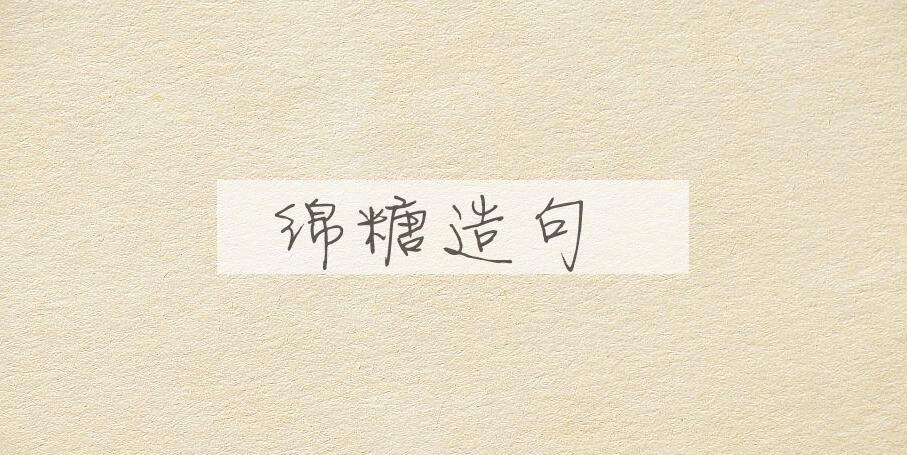 绵糖造句